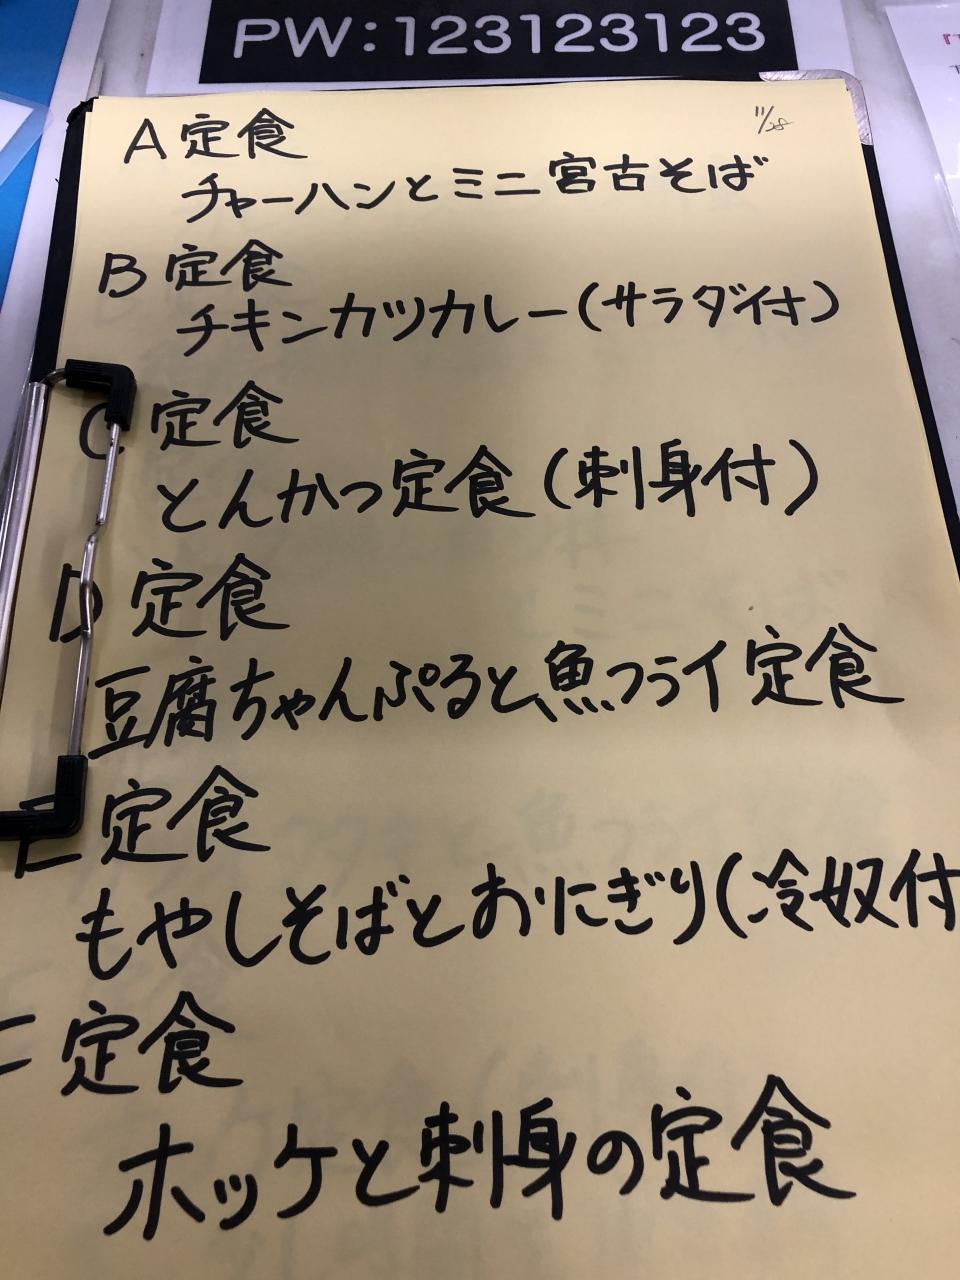 PW:123123123
11/28
A定食
チャーハンとミニ宮古そば
B定食
チキンカツカレー(サラダ付)
C定食
とんかつ定食(刺身付)
D定食
豆腐ちゃんぷると魚フライ定食
E定食
もやしそばとおにぎり(冷奴付
F定食
ホッケと刺身の定食